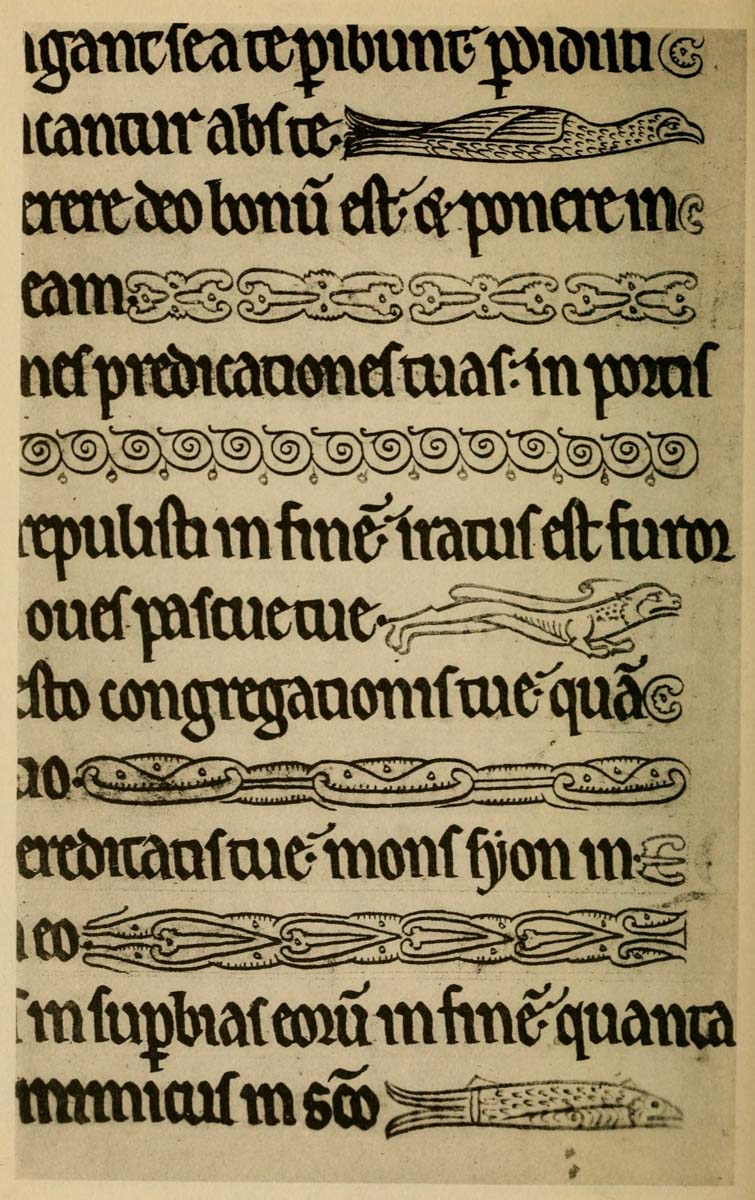 gant se a te pibunt pdidisti
cantur abs te.
erere deo bonū est & ponere in
eam.
nes predicationes tuas: in portis
repulisti in finē iratus est furor
oues pascue tue.
esto congregationis tue quā
io.
ereditatis tue mons syon in
eo.
in supbias eorū in finē quanta
inimicus in sc̄o